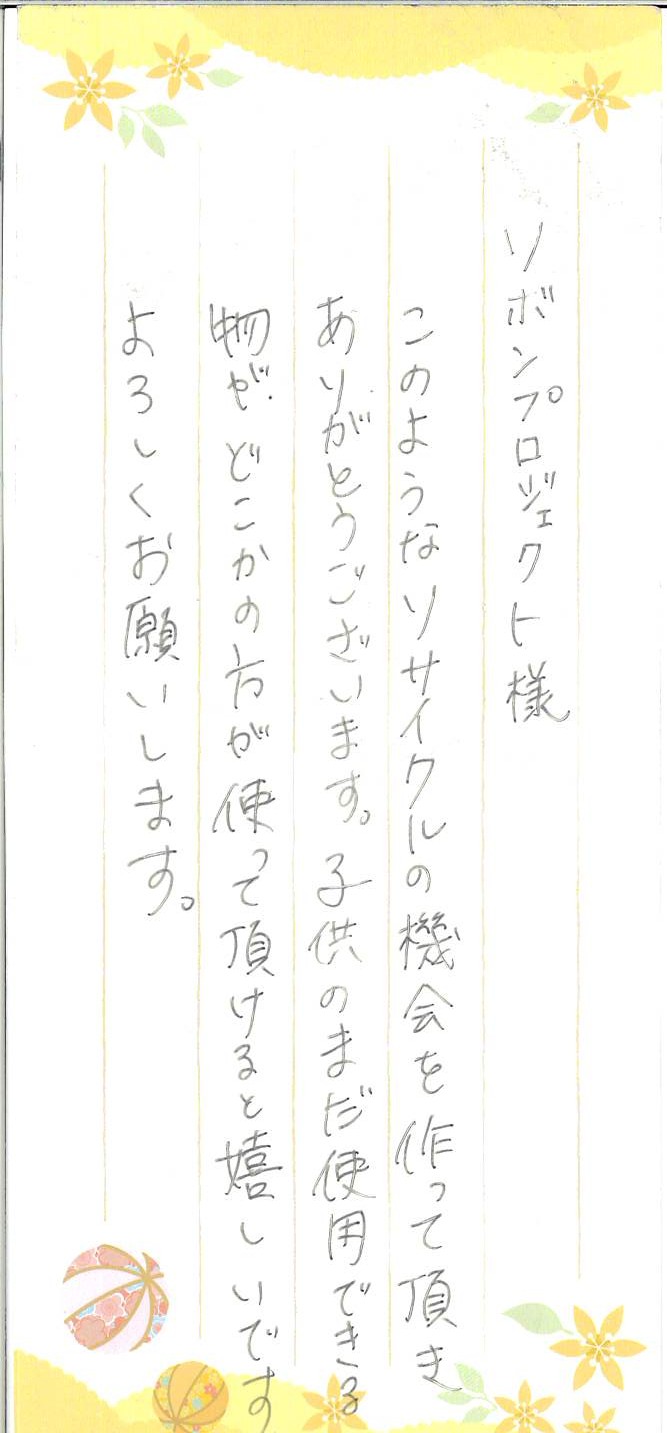 リボンプロジェクト様
このようなリサイクルの機会を作って頂き
ありがとうございます。子供のまだ使用できる
物が、どこかの方が使って頂けると嬉しいです
よろしくお願いします。